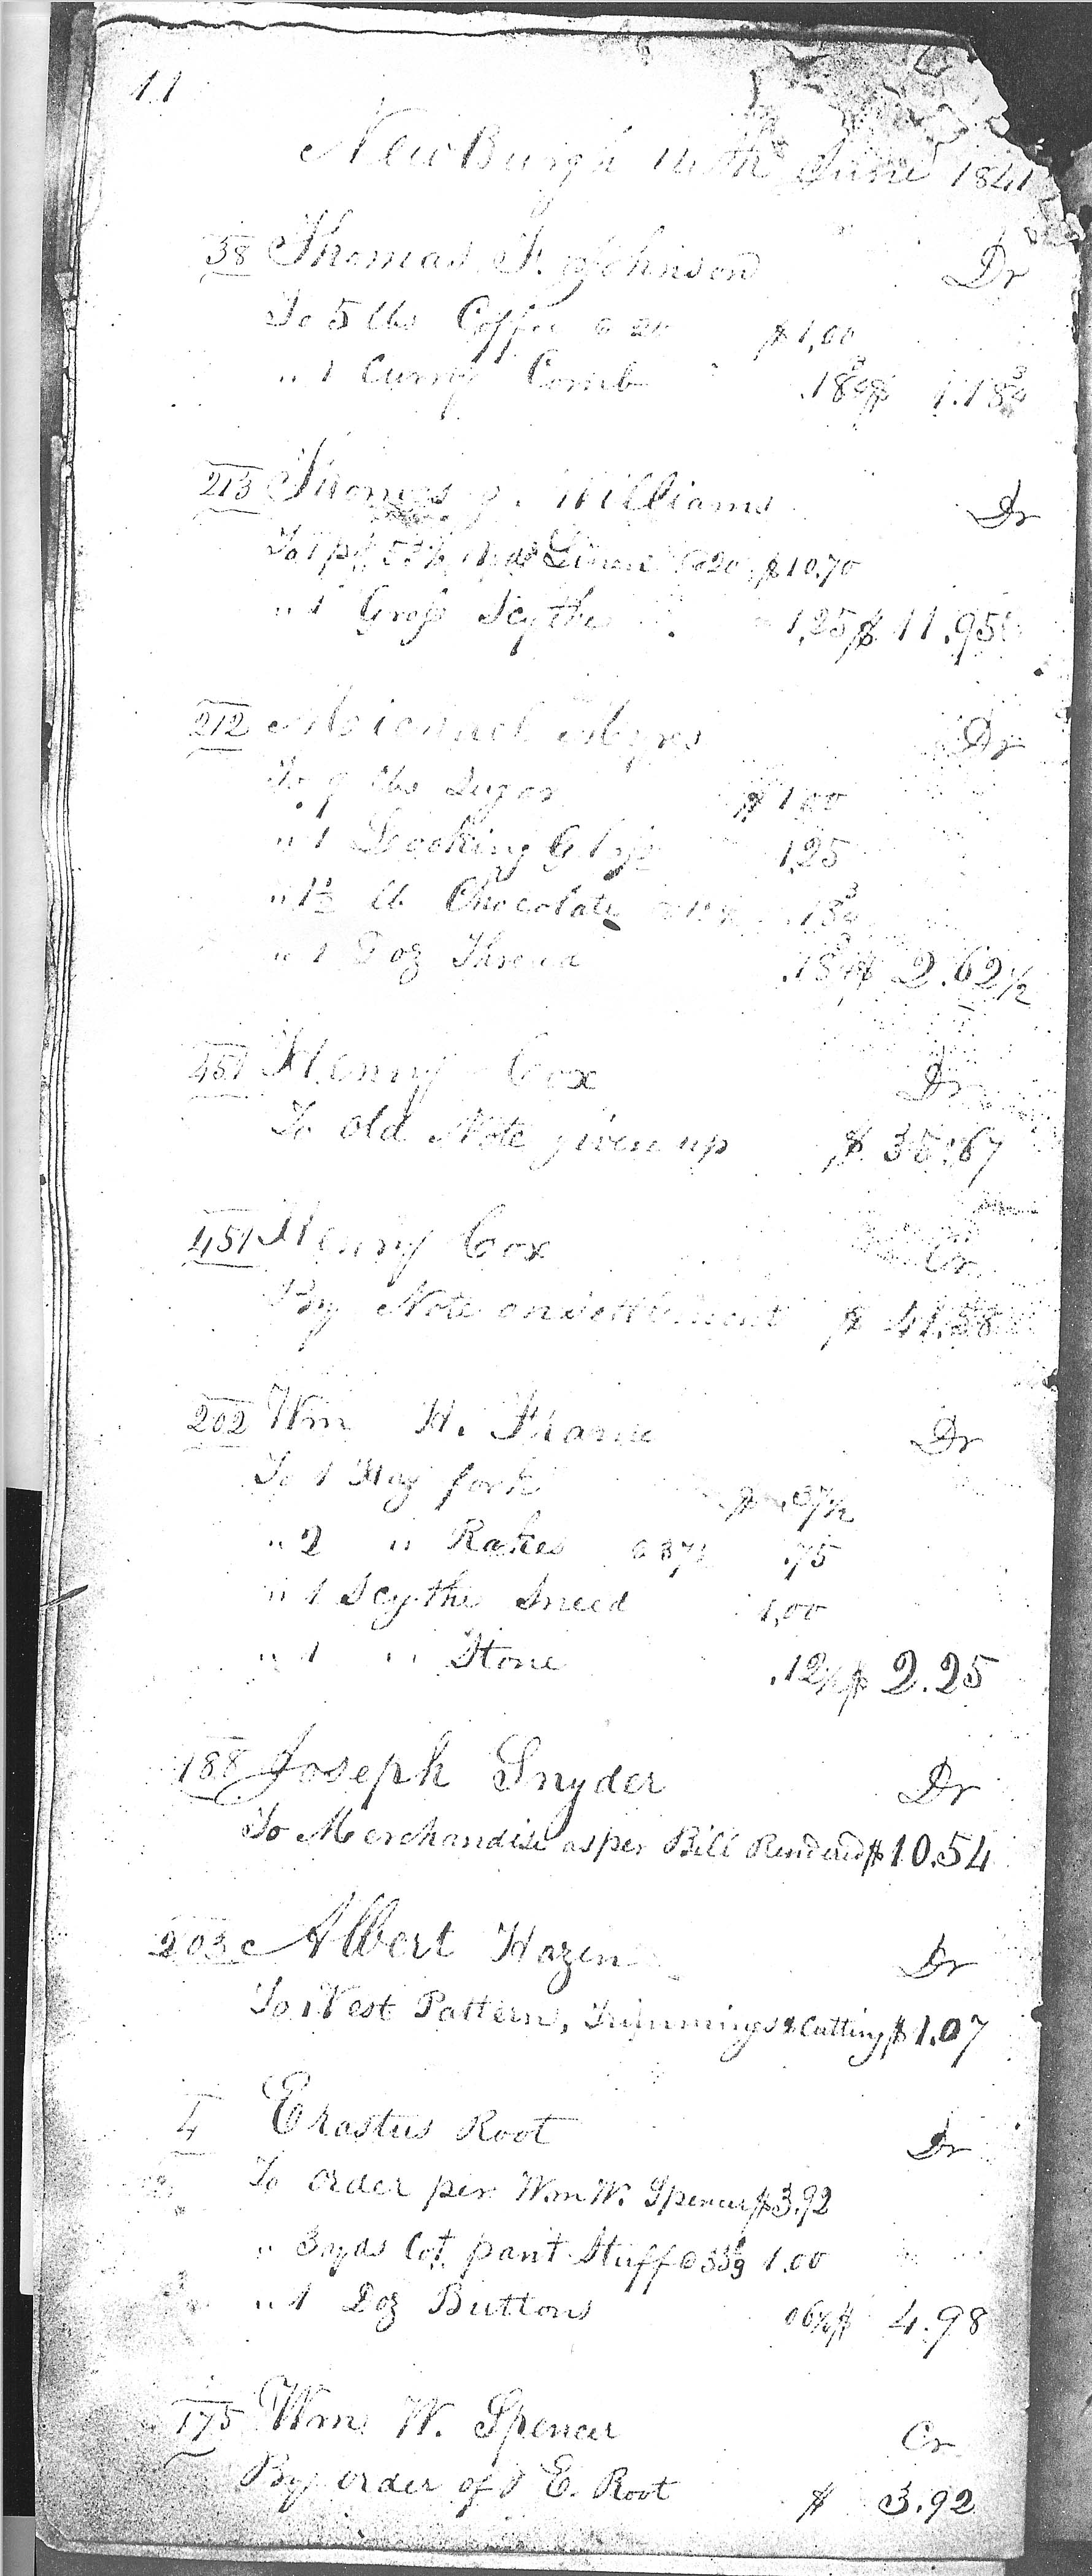 11
NewBurgh 14th June 1841
38 Thomas F. Johnson Dr
To 5 lbs Coffee @ 20 $1,00
" 1 Curry Comb .18¾ $ 1.18¾
213 Thomas J. Williams Dr
To 1 ps 53½ Yds Linen @20 $10.70
" 1 Grass Scythe 1,25 $ 11.95
212 Michael Myrs Dr
To 9 lbs Sugar $1,00
" 1 Looking Glass 1,25
" 1½ lb Chocolate @ 12½ .18¾
" 1 Doz Thread .18¾ $ 2.62½
451 Henry Cox Dr
To old Note given up $ 35.67
451 Henry Cox Cr
By Note on settlement $ 41.58
202 Wm H. Frame Dr
To 1 Hay fork $ .37½
" 2 " Rakes @ 37½ .75
" 1 Scythe Sneed 1,00
" 1 " Stone .12½ $ 2.25
188 Joseph Snyder Dr
To Merchandise as per Bill Rendered $10.54
203 Albert Hazen Dr
To 1 Vest Pattern, Trimmings & Cutting $1.07
4 Erastus Root Dr
To order per Wm W. Spencer $3.92
" 3 yds Cot. pant Stuff @ 33⅓ 1.00
" 1 Doz Buttons 06¼ $ 4.98
175 Wm W. Spencer Cr
By order of E. Root $ 3.92